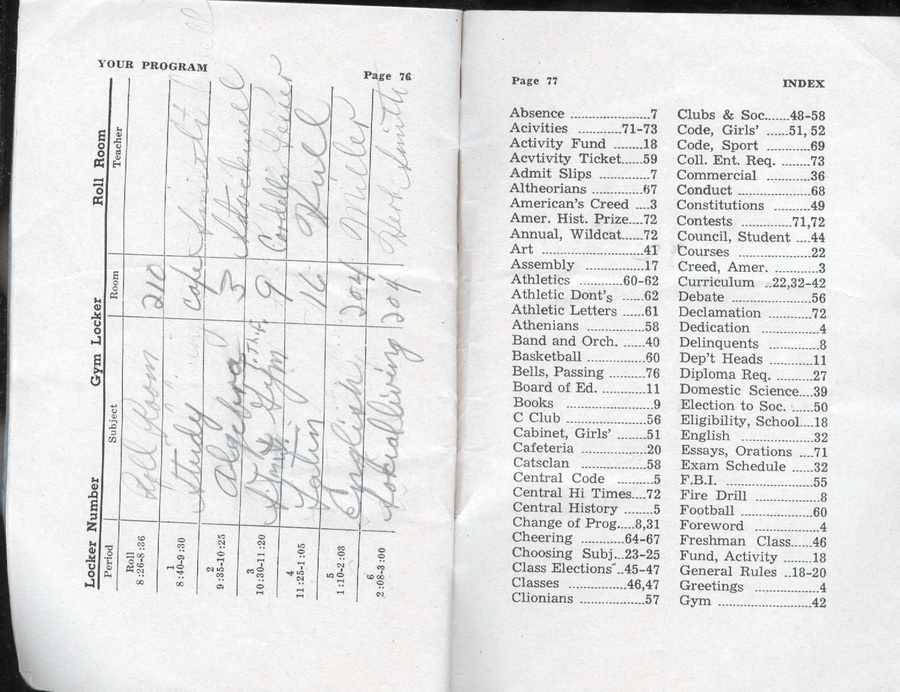 YOUR PROGRAM
Page 76
Locker Number Gym Locker Roll Room
Period Subject Room Teacher
Roll 8:26-8:36 Roll Room 210
1 8:40-9:30 Study cafe Smith
2 9:35-10:25 Algebra 5 Stockwell
3 10:30-11:20 Gym 9 Cordella
4 11:25-1:05 Latin 116
5 1:10-2:03 English 204 Miller
6 2:08-3:00 Socialliving 204 Smith
Page 77
INDEX
Absence ..................7
Acivities ..........71-73
Activity Fund .......18
Acvtivity Ticket.....59
Admit Slips ..........7
Altheorians ..........67
American's Creed ....3
Amer. Hist. Prize....72
Annual, Wildcat......72
Art ......................41
Assembly ............17
Athletics ..........60-62
Athletic Dont's .....62
Athletic Letters ....61
Athenians ............58
Band and Orch. .....40
Basketball ...........60
Bells, Passing .......76
Board of Ed. ........11
Books .................9
C Club ................56
Cabinet, Girls' ......51
Cafeteria .............20
Catsclan ..............58
Central Code .........5
Central Hi Times....72
Central History ......5
Change of Prog....8,31
Cheering ..........64-67
Choosing Subj...23-25
Class Elections..45-47
Classes ............46,47
Clionians .............57
Clubs & Soc......48-58
Code, Girls' .....51, 52
Code, Sport .........69
Coll. Ent. Req. ......73
Commercial .........36
Conduct ..............68
Constitutions ........49
Contests ..........71,72
Council, Student ....44
Courses ..............22
Creed, Amer. .........3
Curriculum ..22,32-42
Debate ................56
Declamation .........72
Dedication ............4
Delinquents ...........8
Dep't Heads .........11
Diploma Req. .......27
Domestic Science....39
Election to Soc. .....50
Eligibility, School...18
English ...............32
Essays, Orations ....71
Exam Schedule .....32
F.B.I. .................55
Fire Drill .............8
Football ..............60
Foreword .............4
Freshman Class.....46
Fund, Activity ......18
General Rules ..18-20
Greetings .............4
Gym ..................42